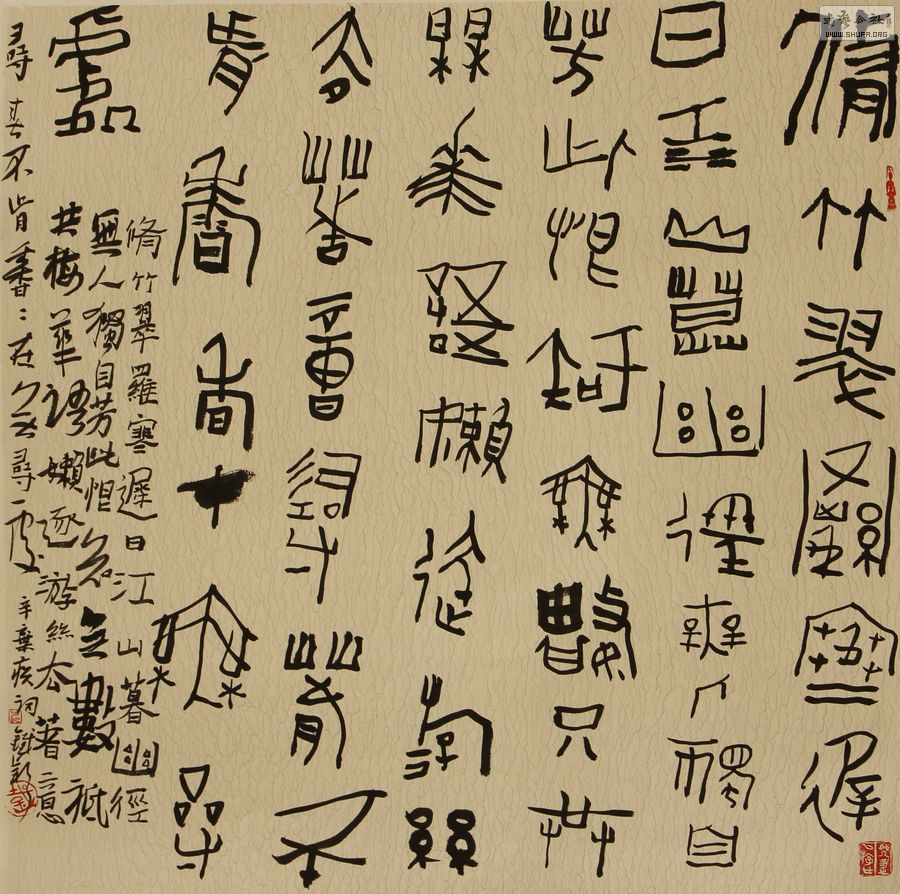 脩竹翠羅寒遲
日江山暮幽徑無人獨自
芳此恨知無數只共
槑華語嬾逐游絲
去著意尋春不
肯香香在無尋
處
脩竹翠羅寒遲日江山暮幽徑
無人獨自芳此恨知無數祇
共梅華語嬾逐游絲去著意
尋春不肯香〻在無尋處 辛棄疾詞
WWW.SHUFA.ORG